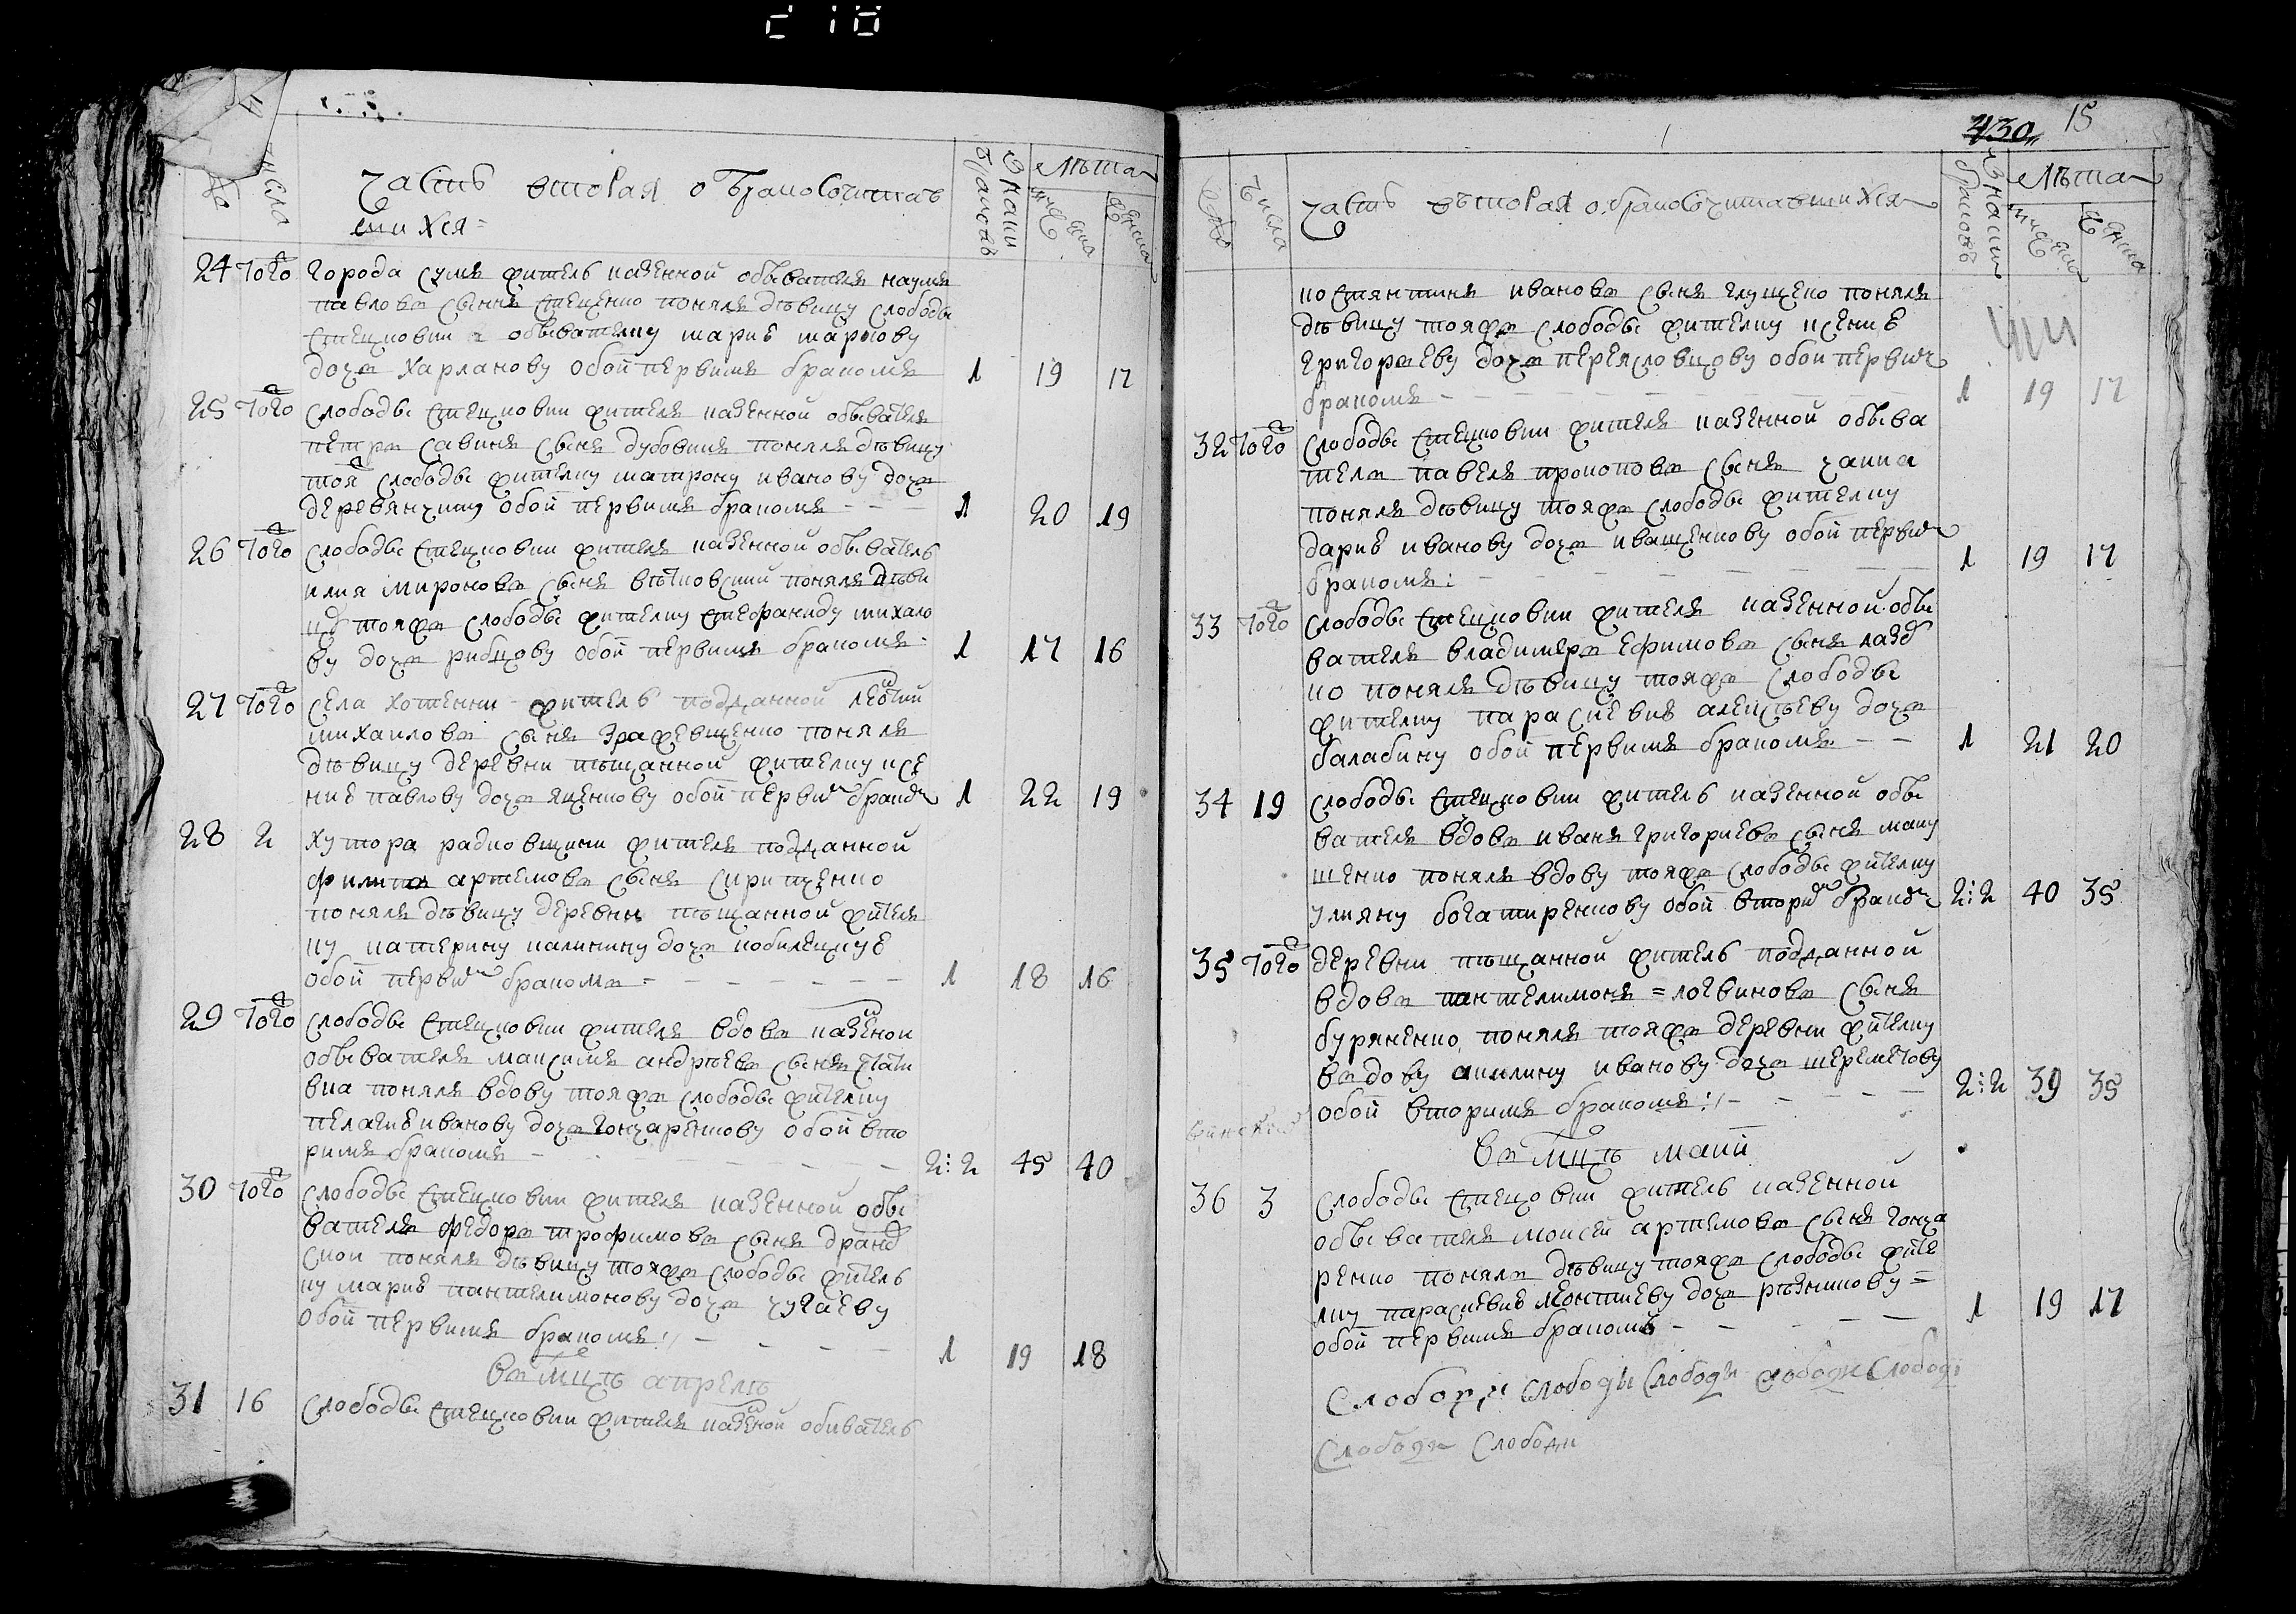 430 15
Часть вторая о бракосочитав
шихся =
числа
браковъ
лѣта
24 того города сумъ житель казенной обывателя наумъ
павловъ сынъ стеценко понялъ дѣвицу слободы
стецковки обывателку марию маркову
дочъ харланову обой первимъ бракомъ 1 19 17
25 того слободы стецковки жителя казенной обывателя
петръ савинъ сынъ дубовикъ понялъ дѣвицу
тояж слободы жителку матрону иванову дочъ
деревянчину обой первимъ бракомъ - - - 1 20 19
26 того слободы стецковки жителя казенной обыватель
илия мироновъ сынъ понялъ дѣви
цу тояжъ слободы жителку стефаниду михайло
ву дочъ рибцову обой первимъ бракомъ - 1 17 16
27 того села хотенки житель подданной леонтий
михайловъ сынъ понялъ
дѣвицу деревни пѣщанной жителку ксе
нию павлову дочъ яценкову обой первим браком 1 22 19
28 2 хутора радковщини жителя подданной
филипъ артемовъ сынъ
понялъ дѣвицу деревни пѣщанной жителя
ку катерину калинину дочъ
обой первим бракомъ - - - 1 18 16
29 того слободы стецковки жителя вдовъ казеной
обывателя максимъ андрѣевъ сынъ
понялъ вдову тояжъ слободы жителку
пелагию иванову дочъ гончаренкову обой вто
римъ бракомъ - - - 2:2 45 40
30 того слободы стецковки жителя казенной обы
вателя федоръ трофимовъ сынъ
понялъ дѣвицу тояжъ слободы житель
ку марию пантелимонову дочъ чугаеву
обой первимъ бракомъ - - - 1 19 18
въ мцѣ апрелѣ
31 16 слободы стецковки жителя казеной обиватель
числа
Часть вторая о бракосочитавшихся
браковъ
лѣта
костянтинъ ивановъ сынъ глущено понялъ
дѣвицу тояжъ слободы жителку ксению
григорьеву дочъ переясловцову обой первим
бракомъ - - - 1 19 17
32 того слободы стецковки жителя казенной обыва
теля павелъ прокоповъ сынъ
понялъ дѣвицу тояжъ слободы жителку
дарию иванову дочъ иващенкову обой первим
бракомъ: - - - 1 19 17
33 того слободы стецковки жителя казенной обы
вателя владимеръ ефимовъ сынъ
ко понялъ дѣвицу тояжъ слободы
жителку парасковию алексѣеву дочъ
балабину обой первимъ бракомъ - - 1 21 20
34 19 слободы стецковки житель казенной обы
вателя вдовъ иванъ григориевъ сынъ маку
шенко понялъ вдову тояжъ слободы жителку
улияну богатиренкову обой вторим браком 2:2 40 35
35 того деревни пѣщанной житель подданной
вдовъ пантелимонъ = логвиновъ сынъ
буряненко понялъ тояжъ деревни жителку
въдову акилину иванову дочъ шереметову
обой вторимъ бракомъ - - - 2:2 39 35
въ мцѣ маии
36 3 слободы стецковки житель казенной
обывателя моисей артемовъ сынъ гонча
ренко понялъ дѣвицу тояжъ слободы жите
лку парасковию леонтиеву дочъ рѣзникову =
обой первимъ бракомъ - - - 1 19 17
Слободи слободы слободи слободи слободі
Слободи Слободи